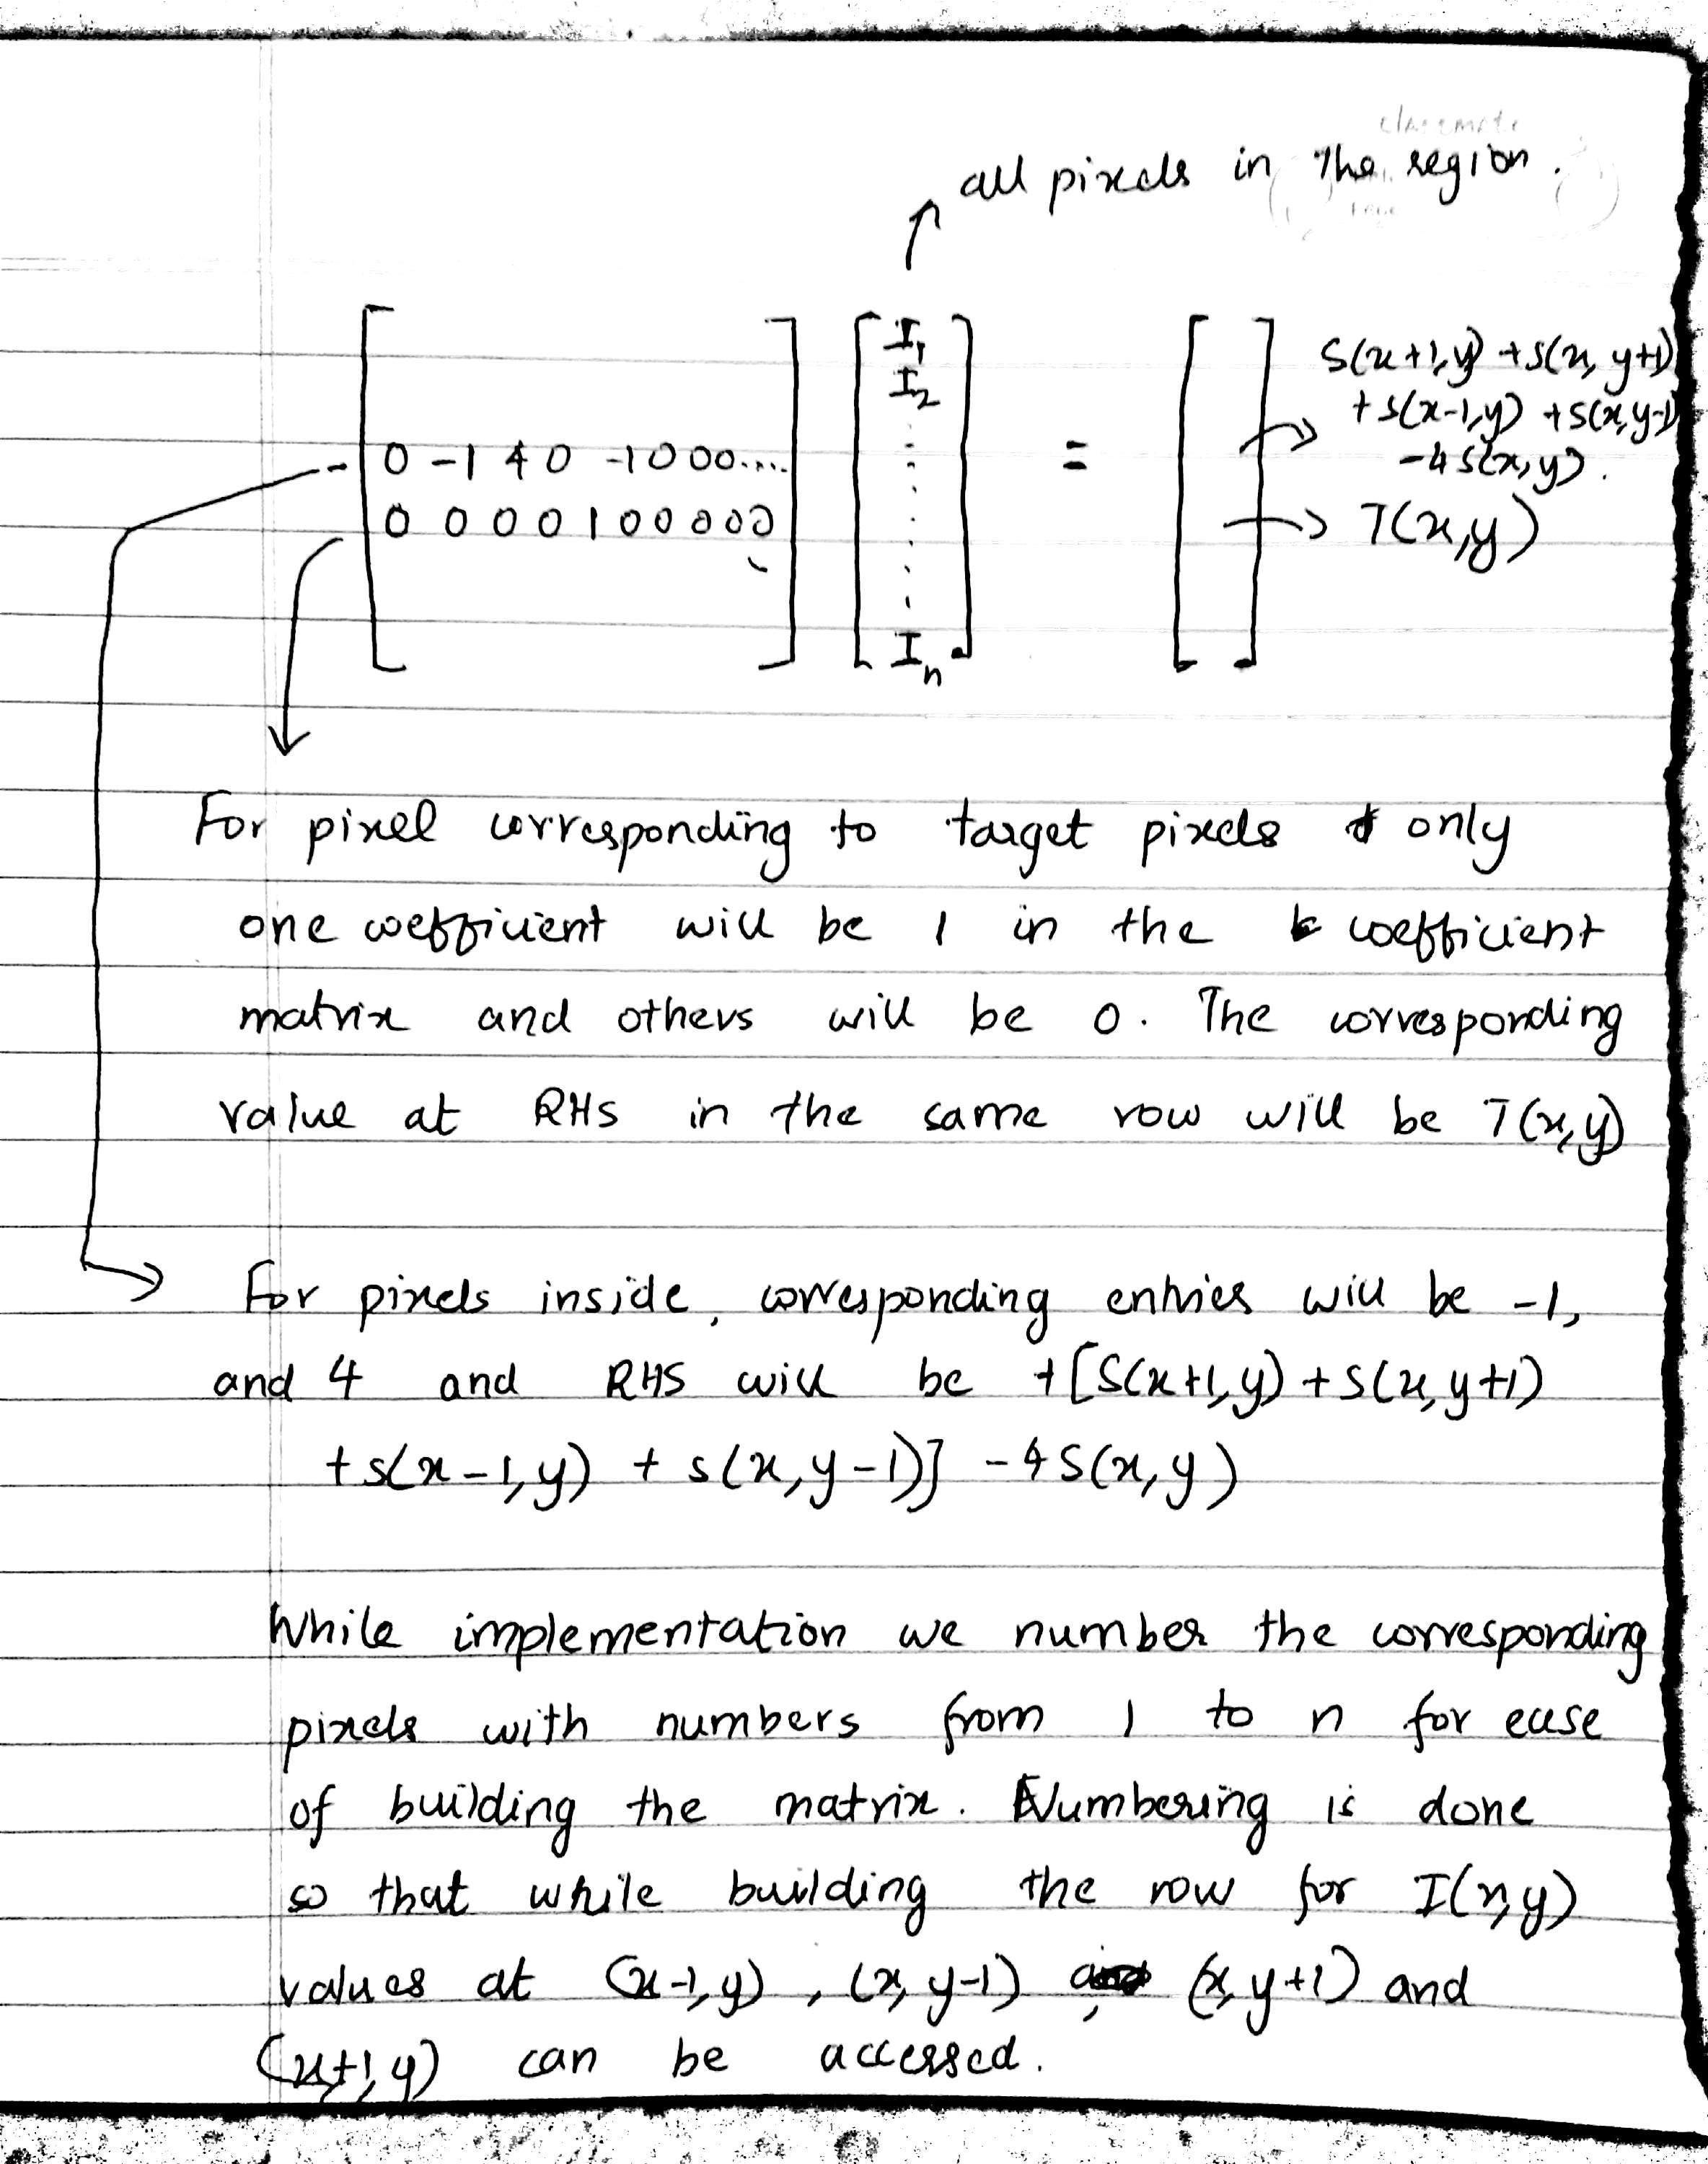 classmate
all pixels in the region.
I₁
I₂
0 -1 4 0 -1 0 0 0.... = S(x+1,y) + S(x, y+1)
+ S(x-1,y) + S(x,y-1)
-4 S(x,y).
0 0 0 0 1 0 0 0 0 0 T(x,y)
Iₙ
For pixel corresponding to target pixels only
one coefficient will be 1 in the coefficient
matrix and others will be 0. The corresponding
value at RHS in the same row will be T(x,y)
For pixels inside, corresponding entries will be -1,
and 4 and RHS will be +[S(x+1,y) + S(x,y+1)
+ S(x-1,y) + S(x,y-1)] - 4S(x,y)
While implementation we number the corresponding
pixels with numbers from 1 to n for ease
of building the matrix. Numbering is done
so that while building the row for I(x,y)
values at (x-1,y), (x,y-1), (x,y+1) and
(x+1,y) can be accessed.